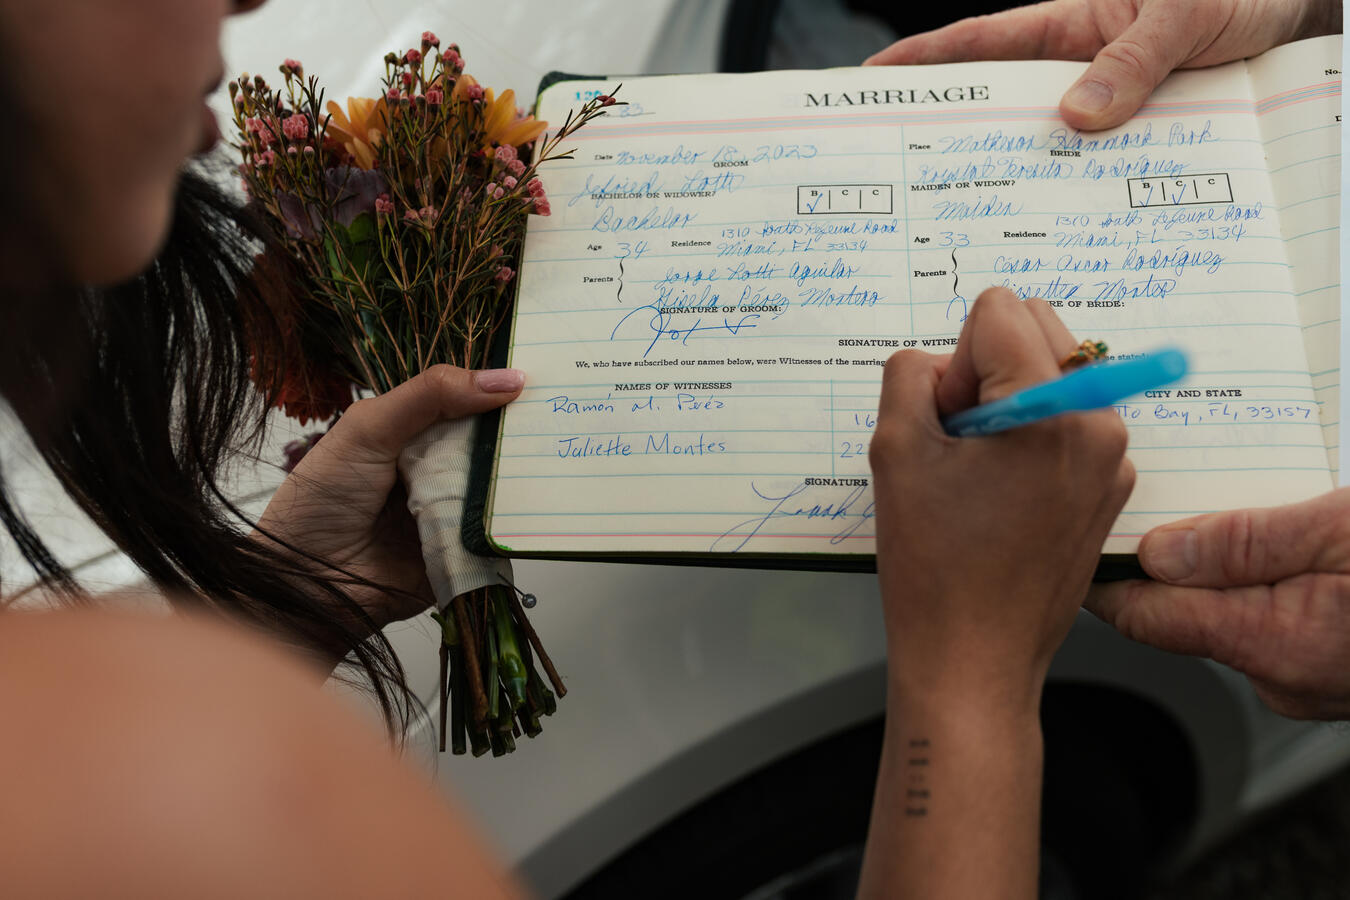 120
83
MARRIAGE
No.
Date November 18, 2023
GROOM
Place Matheson Hammock Park
BRIDE
Jefried Lotti
Krystal Teresita Rodríguez
BACHELOR OR WIDOWER?
B C C
MAIDEN OR WIDOW?
B C C
Bachelor
Maiden
Age 34 Residence 1310 South LeJeune Road
Miami, FL 33134
Age 33 Residence 1310 South LeJeune Road
Miami, FL 33134
Parents Jorge Lotti Aguilar
Gisela Pérez Montero
Parents César Oscar Rodríguez
Lissette Montes
SIGNATURE OF GROOM:
RE OF BRIDE:
SIGNATURE OF WITNE
We, who have subscribed our names below, were Witnesses of the marriag
e stated
NAMES OF WITNESSES
CITY AND STATE
Ramón M. Peréz
16
tto Bay, FL, 33157
Juliette Montes
22
SIGNATURE